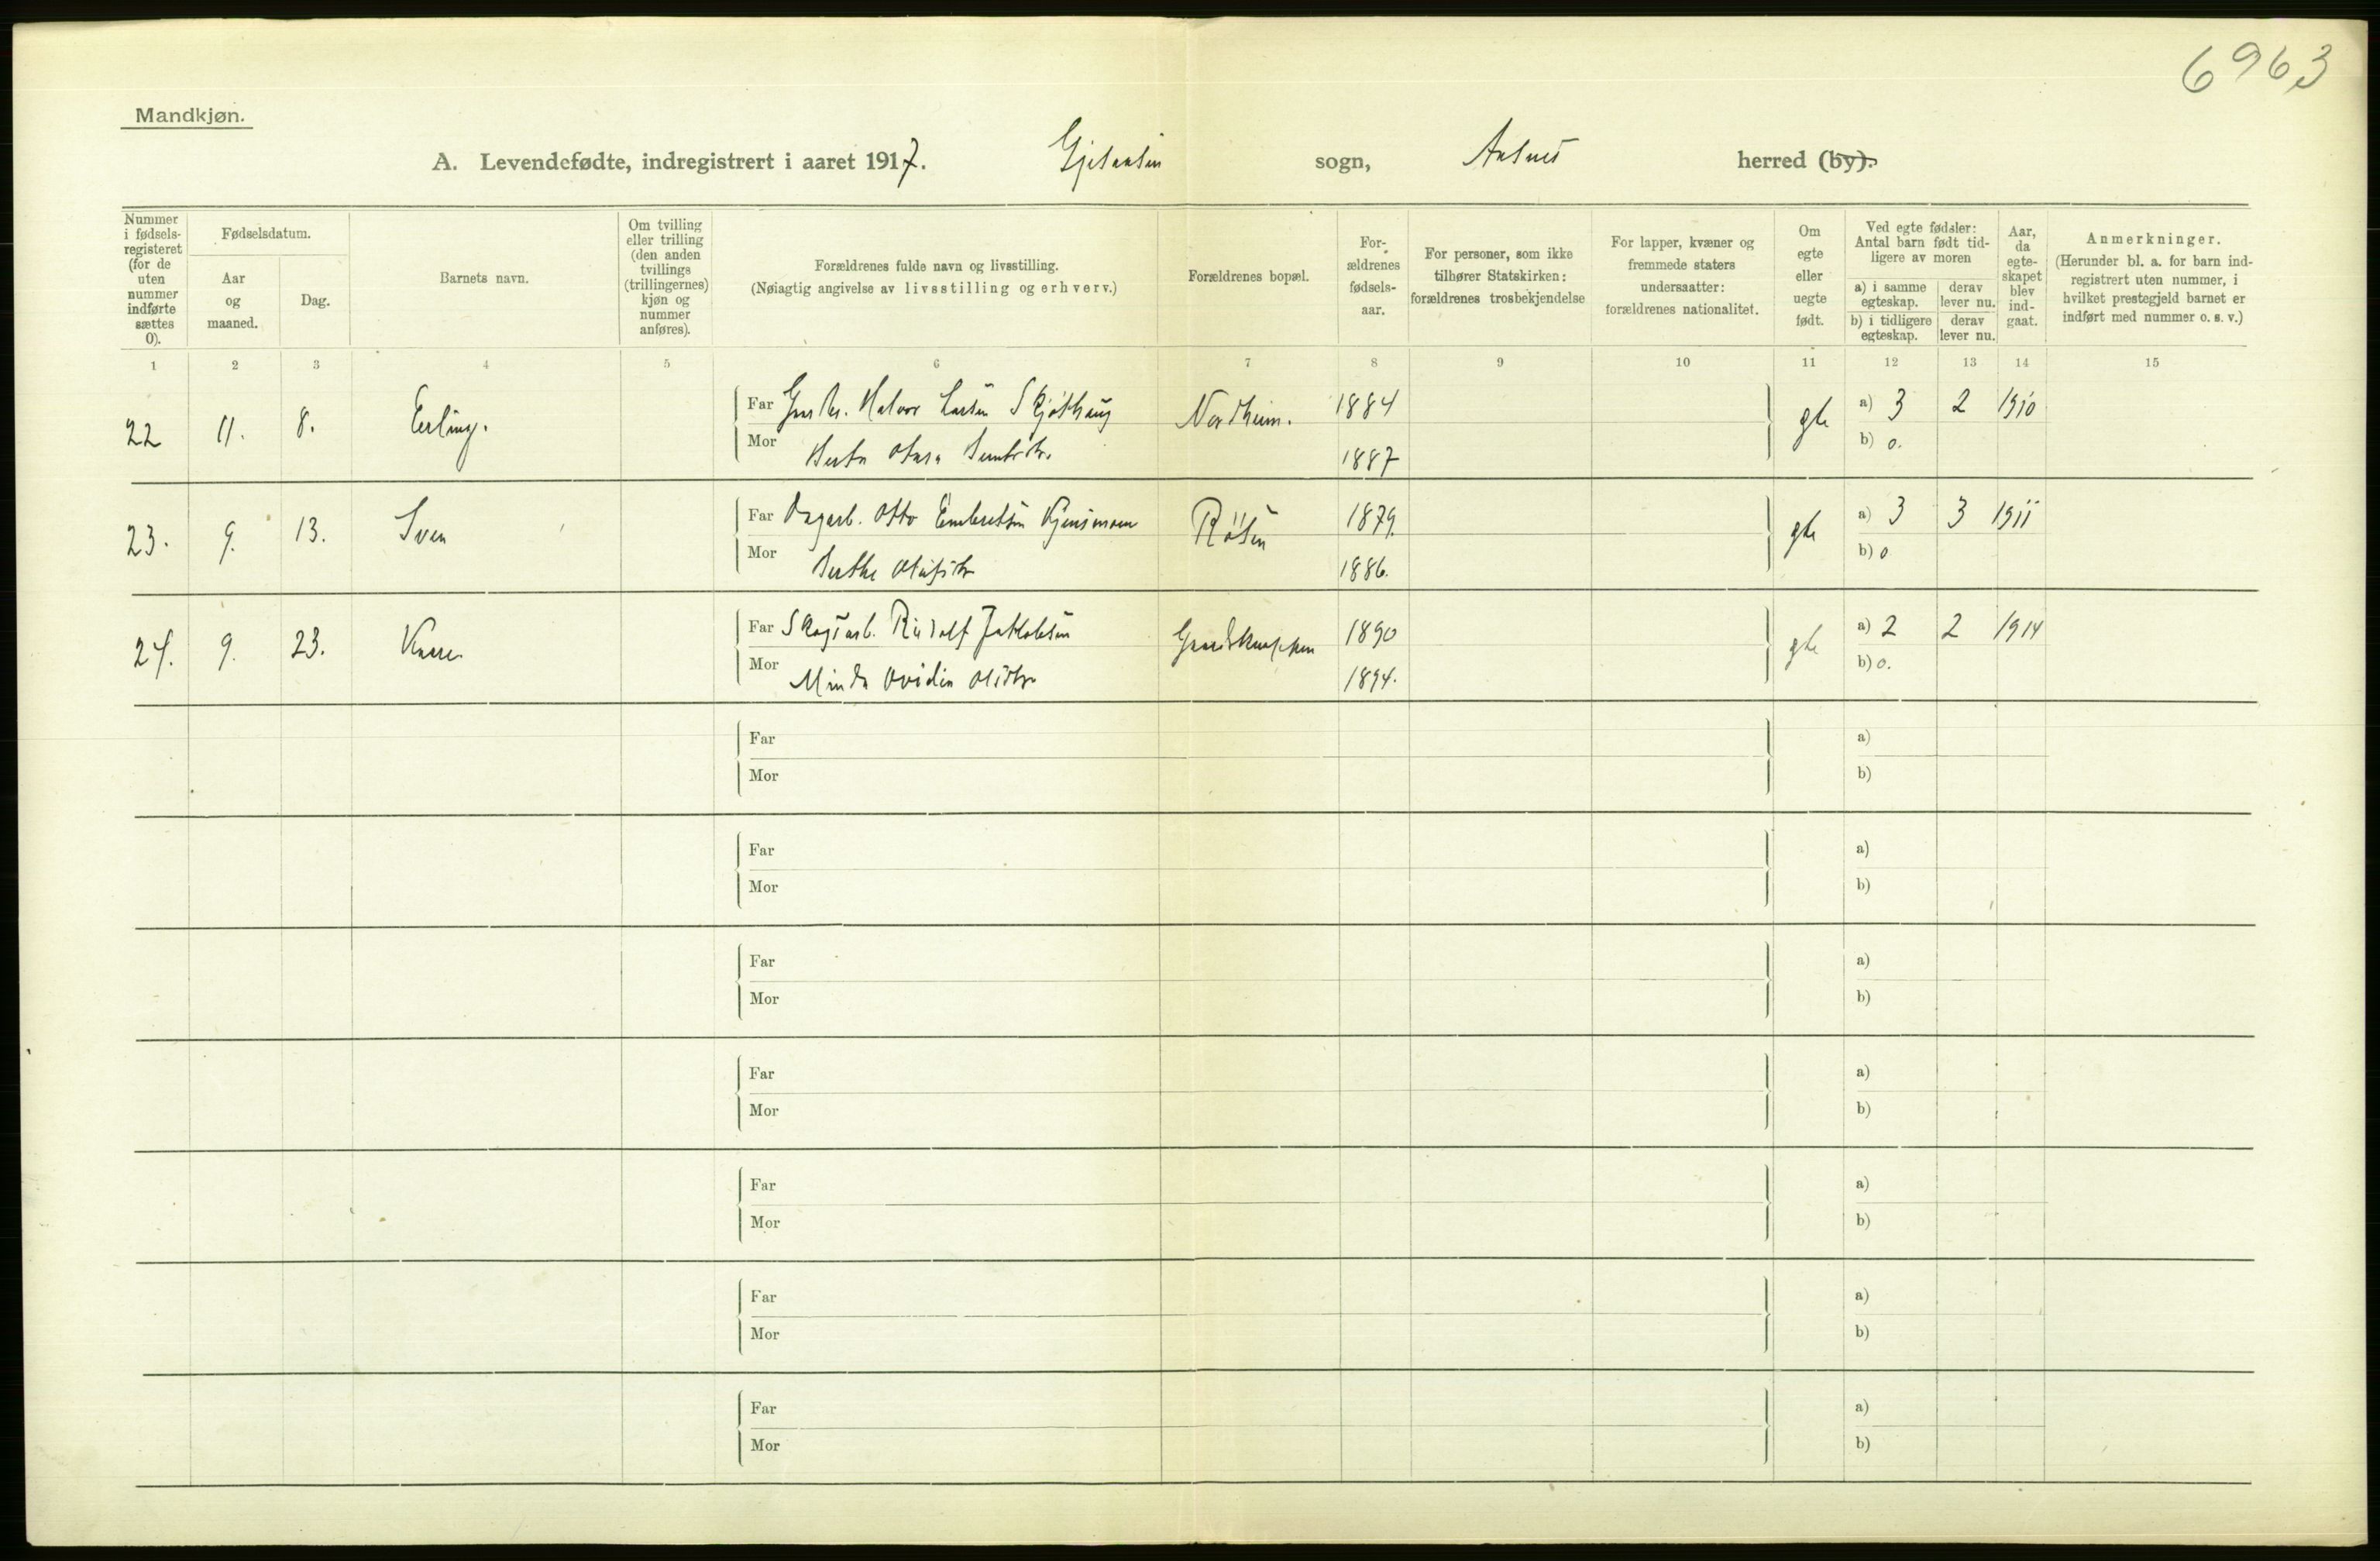 6963
Mandkjøn.
A. Levendefødte, indregistrert i aaret 1917. sogn, herred (by).
Nummer i fødsels-registeret (for de uten nummer indførte sættes 0).
Fødselsdatum.
Aar og maaned.
Dag.
Barnets navn.
Om tvilling eller trilling (den anden tvillings (trillingernes) kjøn og nummer anføres).
Forældrenes fulde navn og livsstilling.
(Nøiagtig angivelse av livsstilling og erhverv.)
Forældrenes bopæl.
For-ældrenes fødsels-aar.
For personer, som ikke tilhører Statskirken: forældrenes trosbekjendelse
For lapper, kvæner og fremmede staters undersaatter: forældrenes nationalitet.
Om egte eller uegte født.
Ved egte fødsler: Antal barn født tid-ligere av moren
a) i samme egteskap.
derav lever nu.
b) i tidligere egteskap.
derav lever nu.
Aar, da egte-skapet blev ind-gaat.
Anmerkninger.
(Herunder bl. a. for barn ind-registrert uten nummer, i hvilket prestegjeld barnet er indført med nummer o. s. v.)
1 2 3 4 5 6 7 8 9 10 11 12 13 14 15
22 11. 8. Erling. Far Halvor Larsen Skjøthaug Nordheim. 1884 gte a) 3 2 1910
Mor 1887 b) 0.
23. 9. 13. Sven Far Dagarb. Otto Embretsen 1879. gte a) 3 3 1911
Mor Berthe 1886. b) 0
24. 9. 23. Kaare Far Skogsarb. Rudolf Jakobsen 1890 gte a) 2 2 1914
Mor Minda Ovidia 1894. b) 0.
Far a)
Mor b)
Far a)
Mor b)
Far a)
Mor b)
Far a)
Mor b)
Far a)
Mor b)
Far a)
Mor b)
Far a)
Mor b)